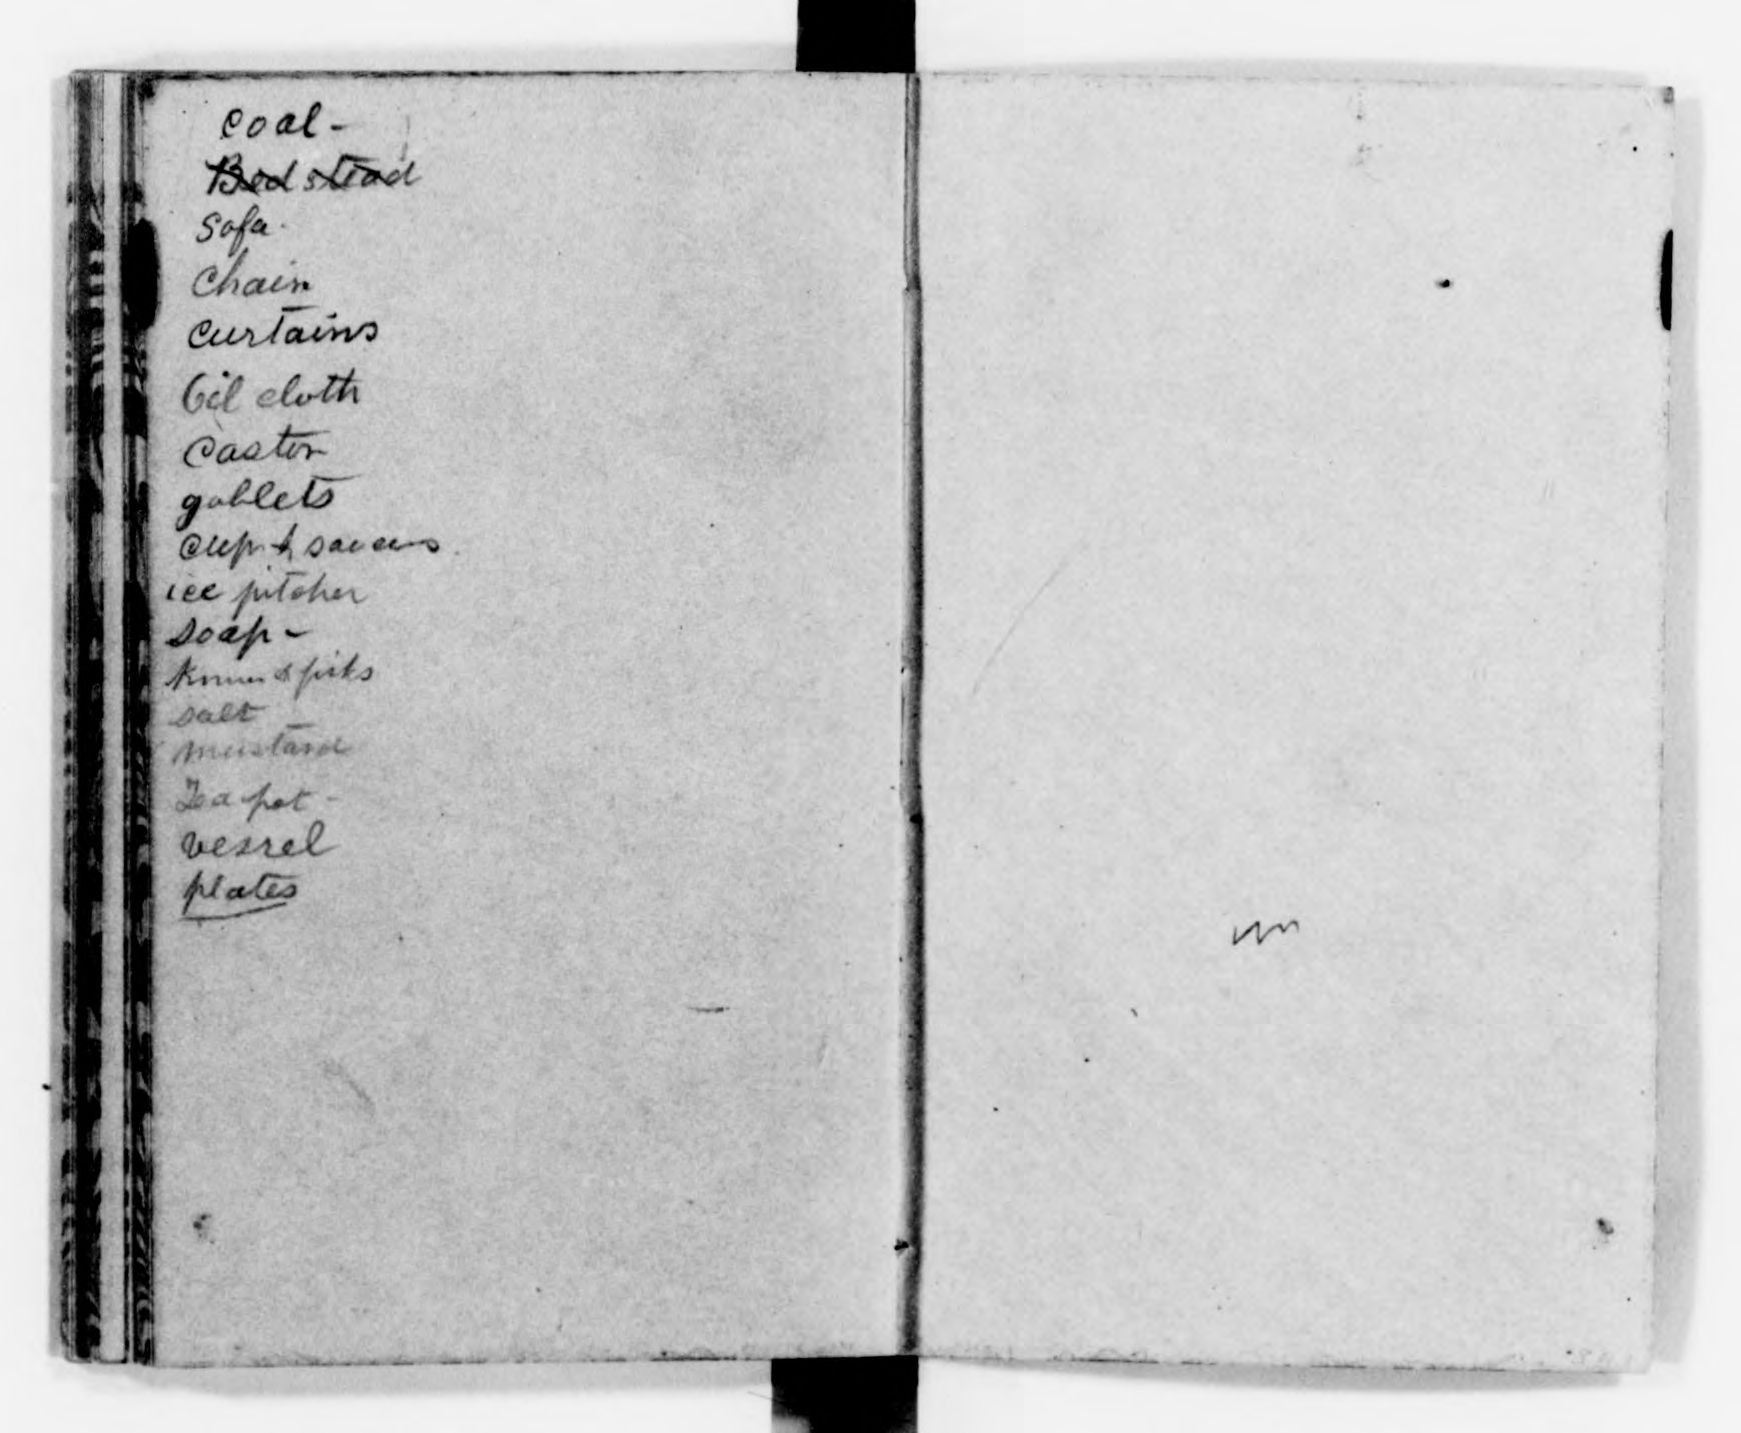 coal -
Bedstead
Sofa -
Chairs
Curtains
Oil cloth
Castor
goblets
cups & saucers
ice pitcher
soap -
Knives & forks
salt
mustard
Tea pot -
vessel
plates